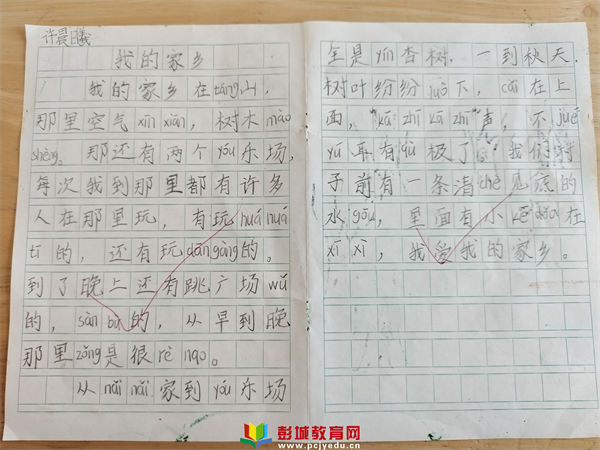 许晨曦
我的家乡
我的家乡在táng山,
那里空气xīn xiān,树木mào
shèng。那还有两个yóu乐场,
每次我到那里都有许多
人在那里玩,有玩huá huá
tī的,还有玩dān gàng的。
到了晚上还有跳广场wǔ
的,sàn bù的,从早到晚
那里zǒng是很rè nao。
从nǎi nai家到yóu乐场
全是yín杏树,一到秋天,
树叶纷纷luò下,cǎi在上
面,"kā zhī kā zhī"声,不jué
yú耳有qù极了。我们村
子前有一条清chè见底的
水gōu,里面有小kē dǒu在
xī xì,我爱我的家乡。
彭城教育网
www.pcjyedu.cn